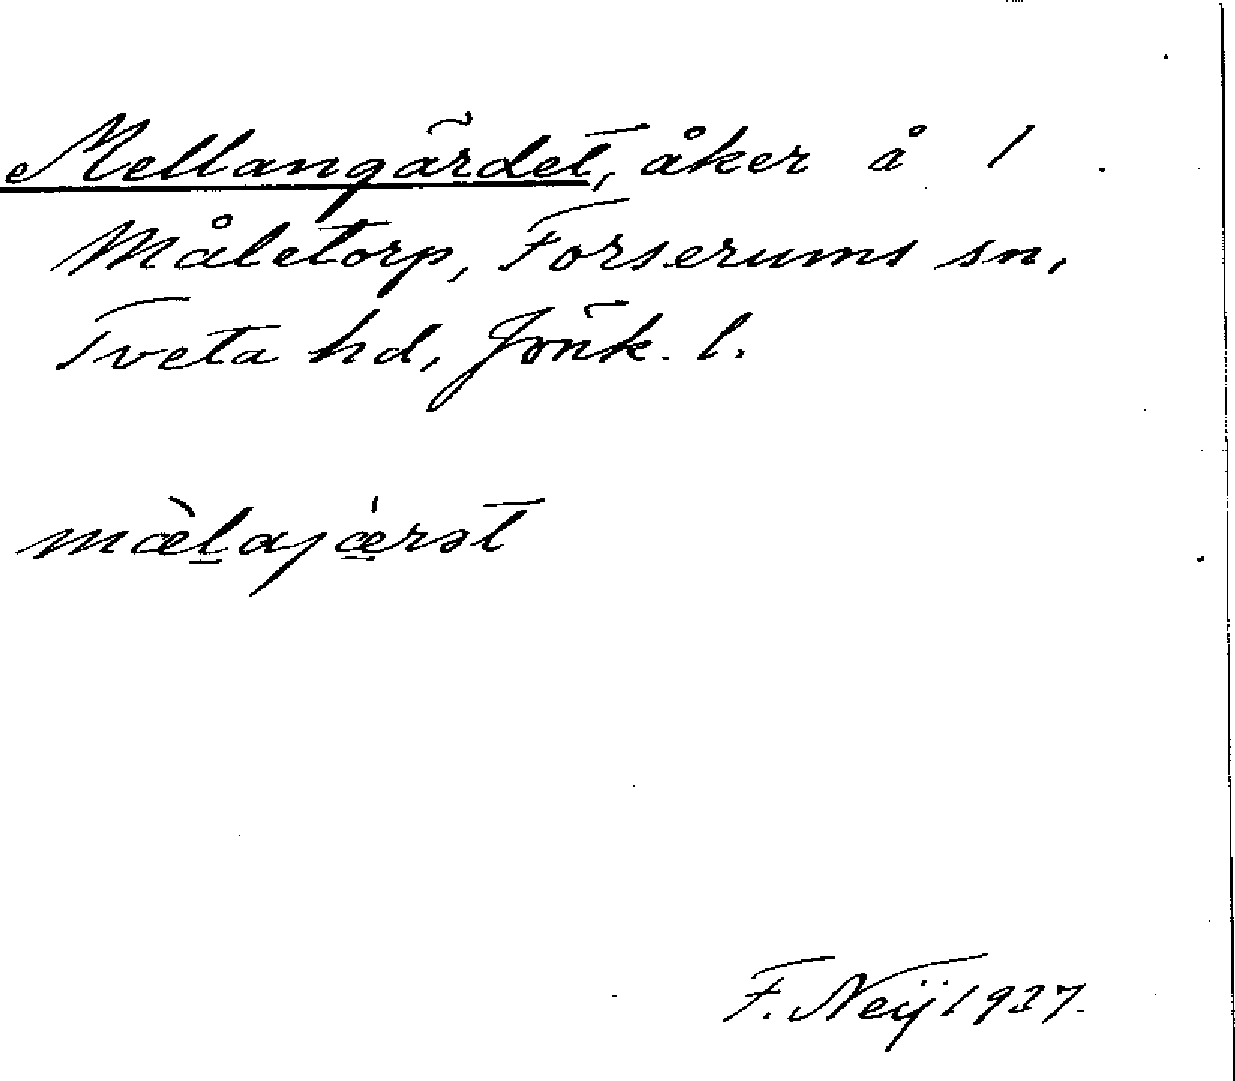 Mellangärdet, åker å 1
Måletorp, Forserums sn,
Tveta hd, Jönk. l.
mæ̀lajǽrət
F. Neij 1937.